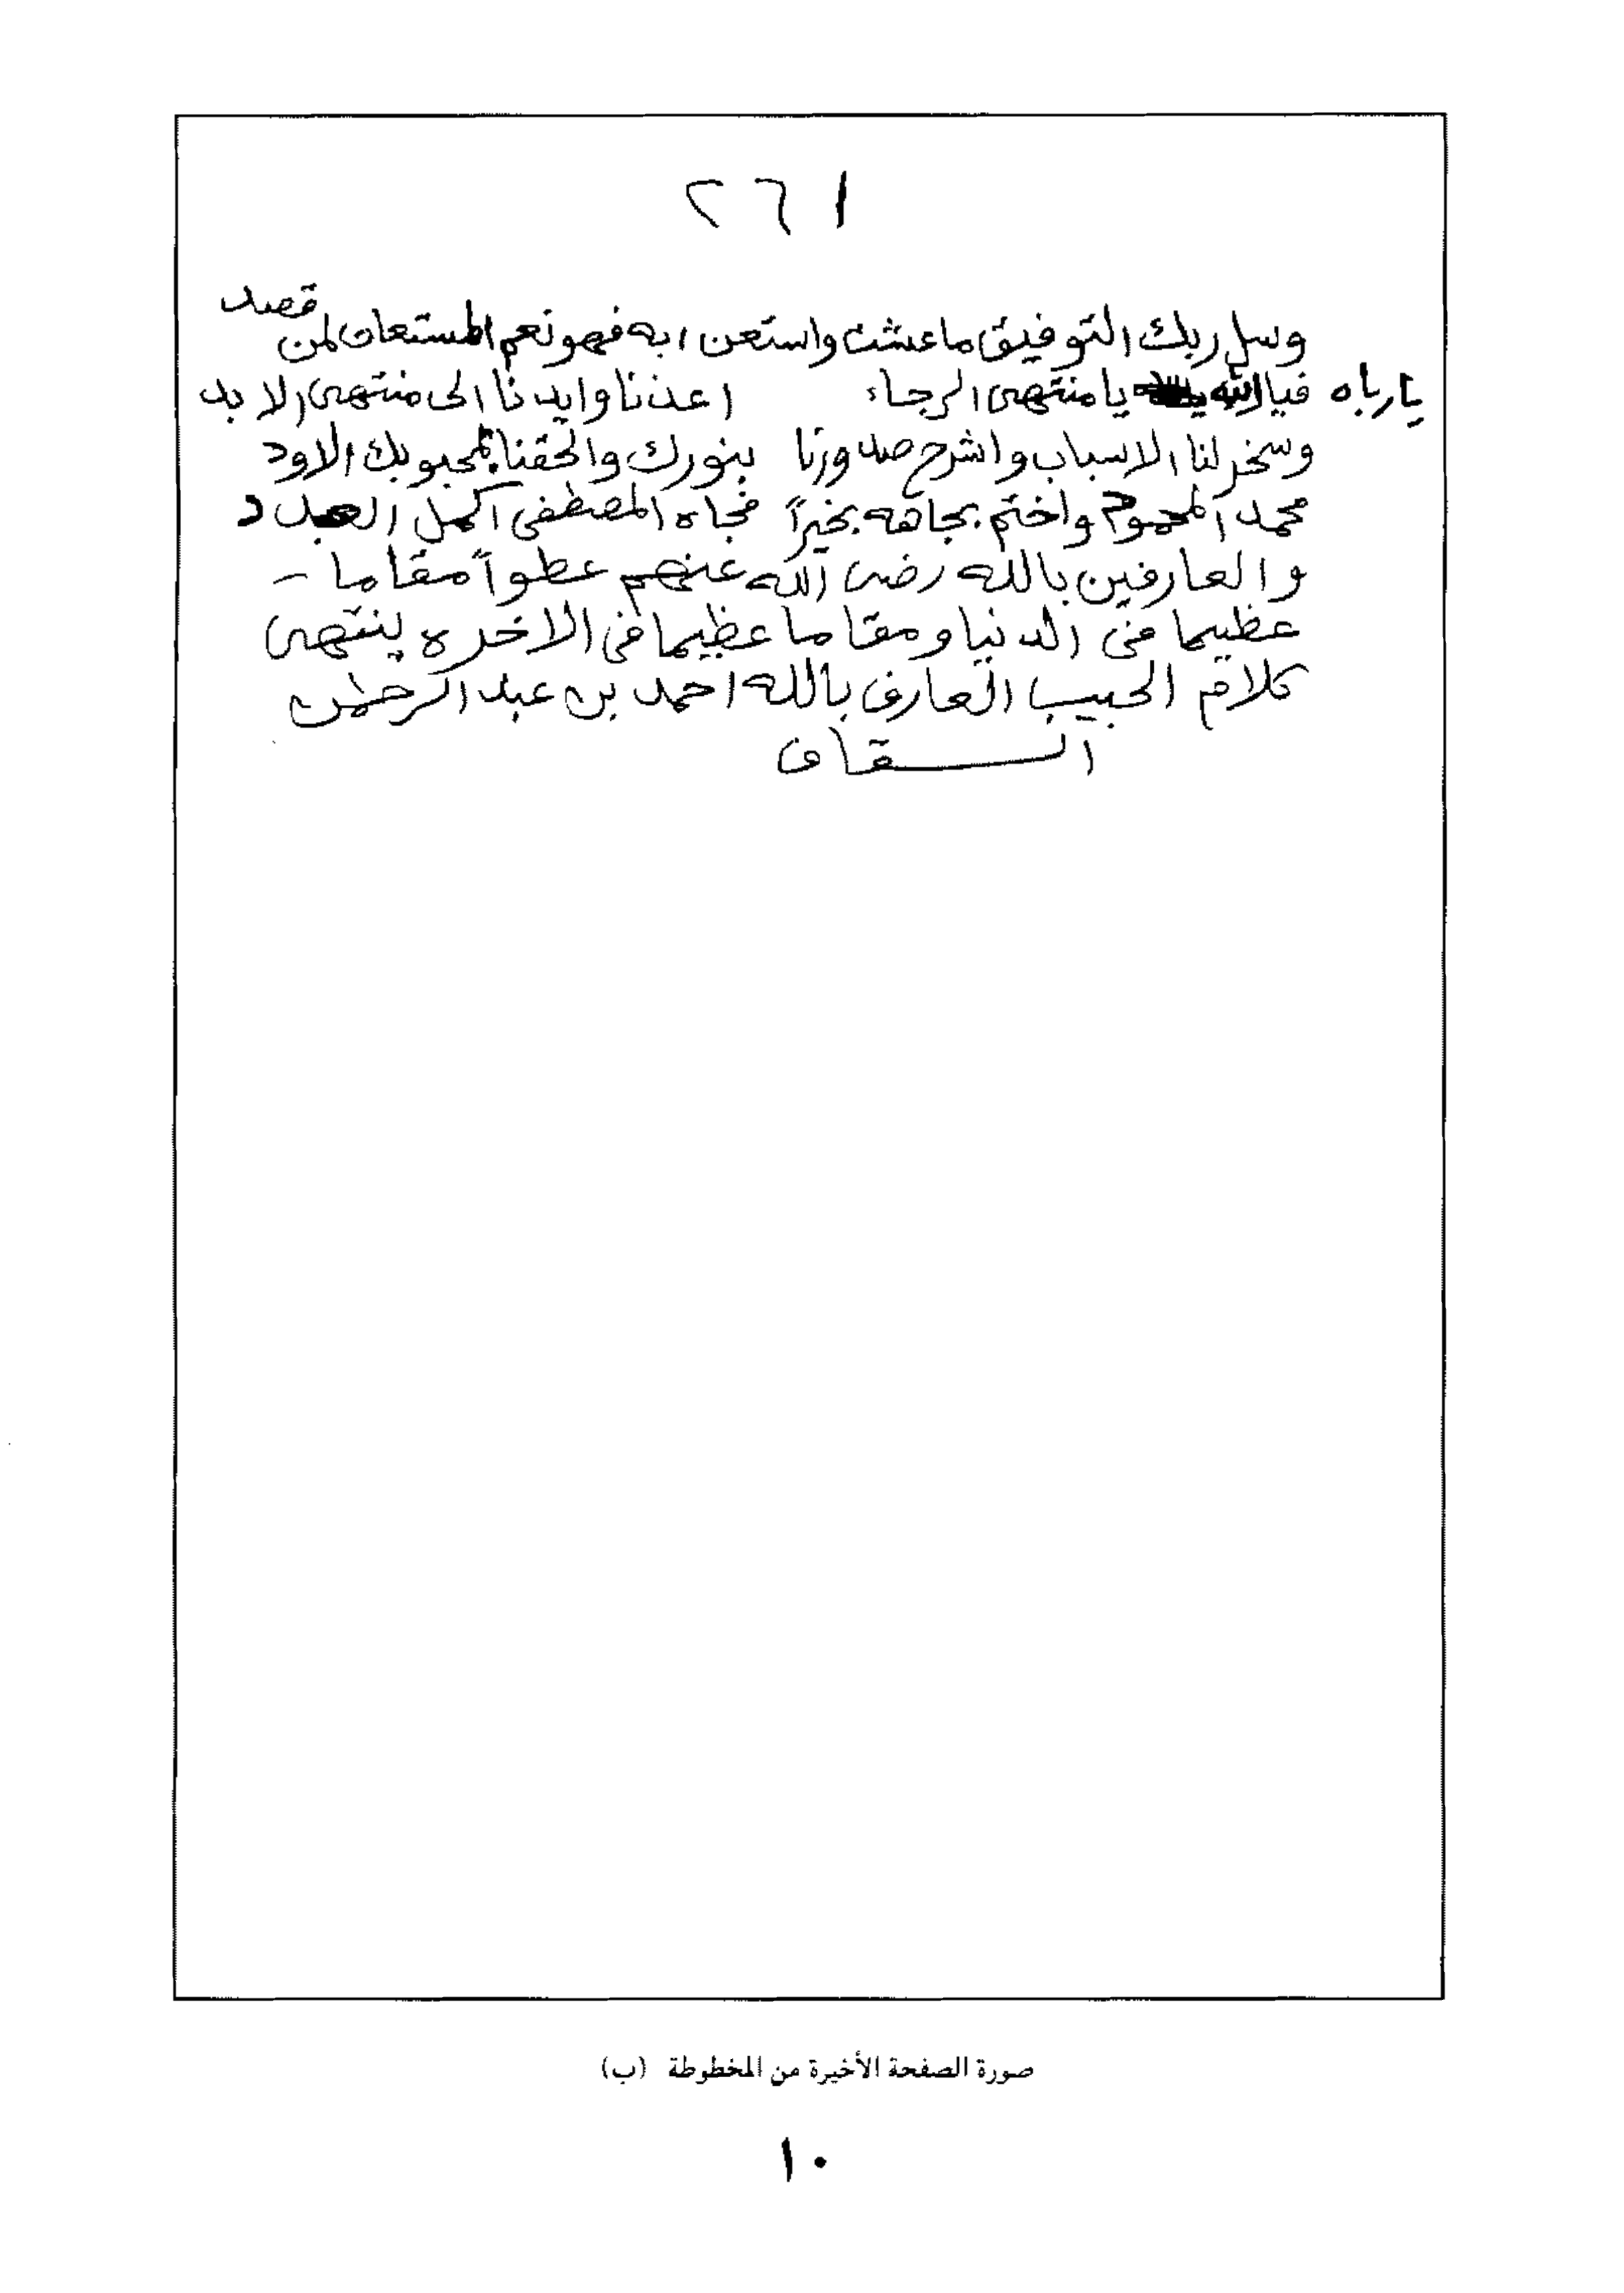 ٢٦١
وسل ربك التوفيق ما عشت واستعن ا به فهو نعم المستعان لمن قصد
يا رباه فيا الله يا منتهى الرجاء اعذنا وايدنا الى منتهى الابد
وسخر لنا الاسباب واشرح صدورنا بنورك والحقنا بمحبوبك الاود
محمد المحمود واختم بجاهه بخيراً فجاه المصطفى اكمل العدد
والعارفين بالله رضى الله عنهم عطوا مقاما
عظيما في الدنيا ومقاما عظيما في الاخره ينتهى
كلام الحبيب العارف بالله احمد بن عبد الرحمن
السقاف
صورة الصفحة الأخيرة من المخطوطة (ب)
١٠